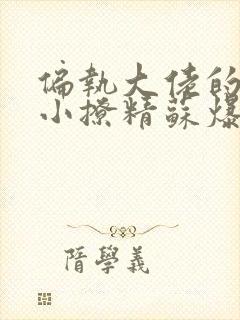 偏執大佬的
小撩精蘇爆
隋學義